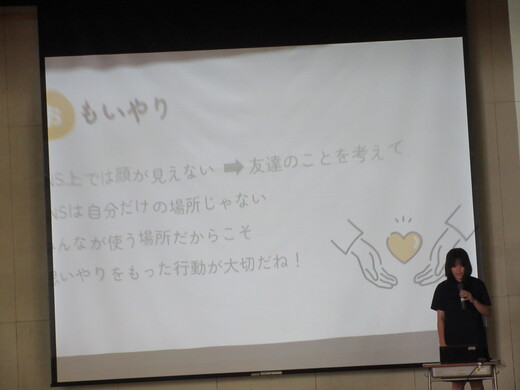 S もいやり
NS上では顔が見えない ➡ 友達のことを考えて
NSは自分だけの場所じゃない
んなが使う場所だからこそ
いやりをもった行動が大切だね！